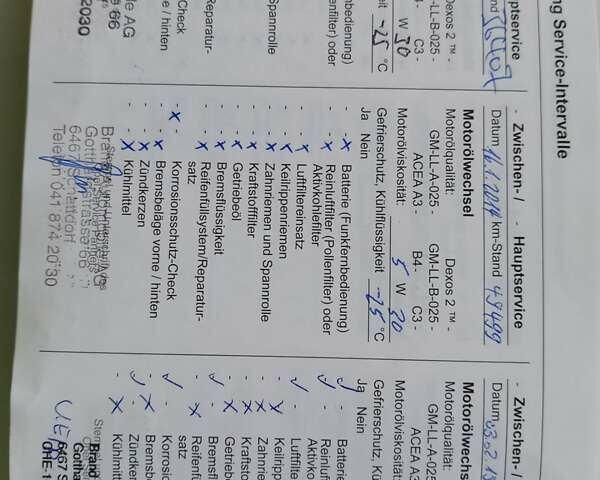 ng Service-Intervalle
- Zwischen- / - Hauptservice
Datum 16.1.2014 km-Stand 49499
Motorölwechsel
Motorölqualität: Dexos 2 ™ -
GM-LL-A-025 - GM-LL-B-025 -
ACEA A3 - B4 - C3 -
Motorölviskosität: 5 W 30
Gefrierschutz, Kühlflüssigkeit -25 °C
Ja Nein
- x Batterie (Funkfernbedienung)
- x Reinluftfilter (Pollenfilter) oder
Aktivkohlefilter
- x Luftfiltereinsatz
- x Keilrippenriemen
- x Zahnriemen und Spannrolle
- x Kraftstofffilter
- x Getriebeöl
- x Bremsflüssigkeit
- x Reifenfüllsystem/Reparatur-
satz
x - Korrosionsschutz-Check
- x Bremsbeläge vorne / hinten
- x Zündkerzen
- x Kühlmittel
6467 Schattdorf
Telefon 041 874 20 30
uptservice
Dexos 2 ™ -
-LL-B-025 -
C3 -
W 30
eit -25 °C
bedienung)
enfilter) oder
Spannrolle
Reparatur-
Check
e / hinten
de AG
e 66
2030
- Zwischen- /
Datum 03.2.15
Motorölwechs
Motorölqualität:
GM-LL-A-025
ACEA A3 -
Motorölviskosität:
Gefrierschutz, Kü
Ja Nein
Batterie
Reinluf
Aktivko
Luftfilt
Keilripp
Zahnrie
Kraftsto
Getriebe
Bremsfl
Reifenfü
satz
Korrosio
Bremsb
Zündker
Kühlmitt
Brand
Gottha
6467 S